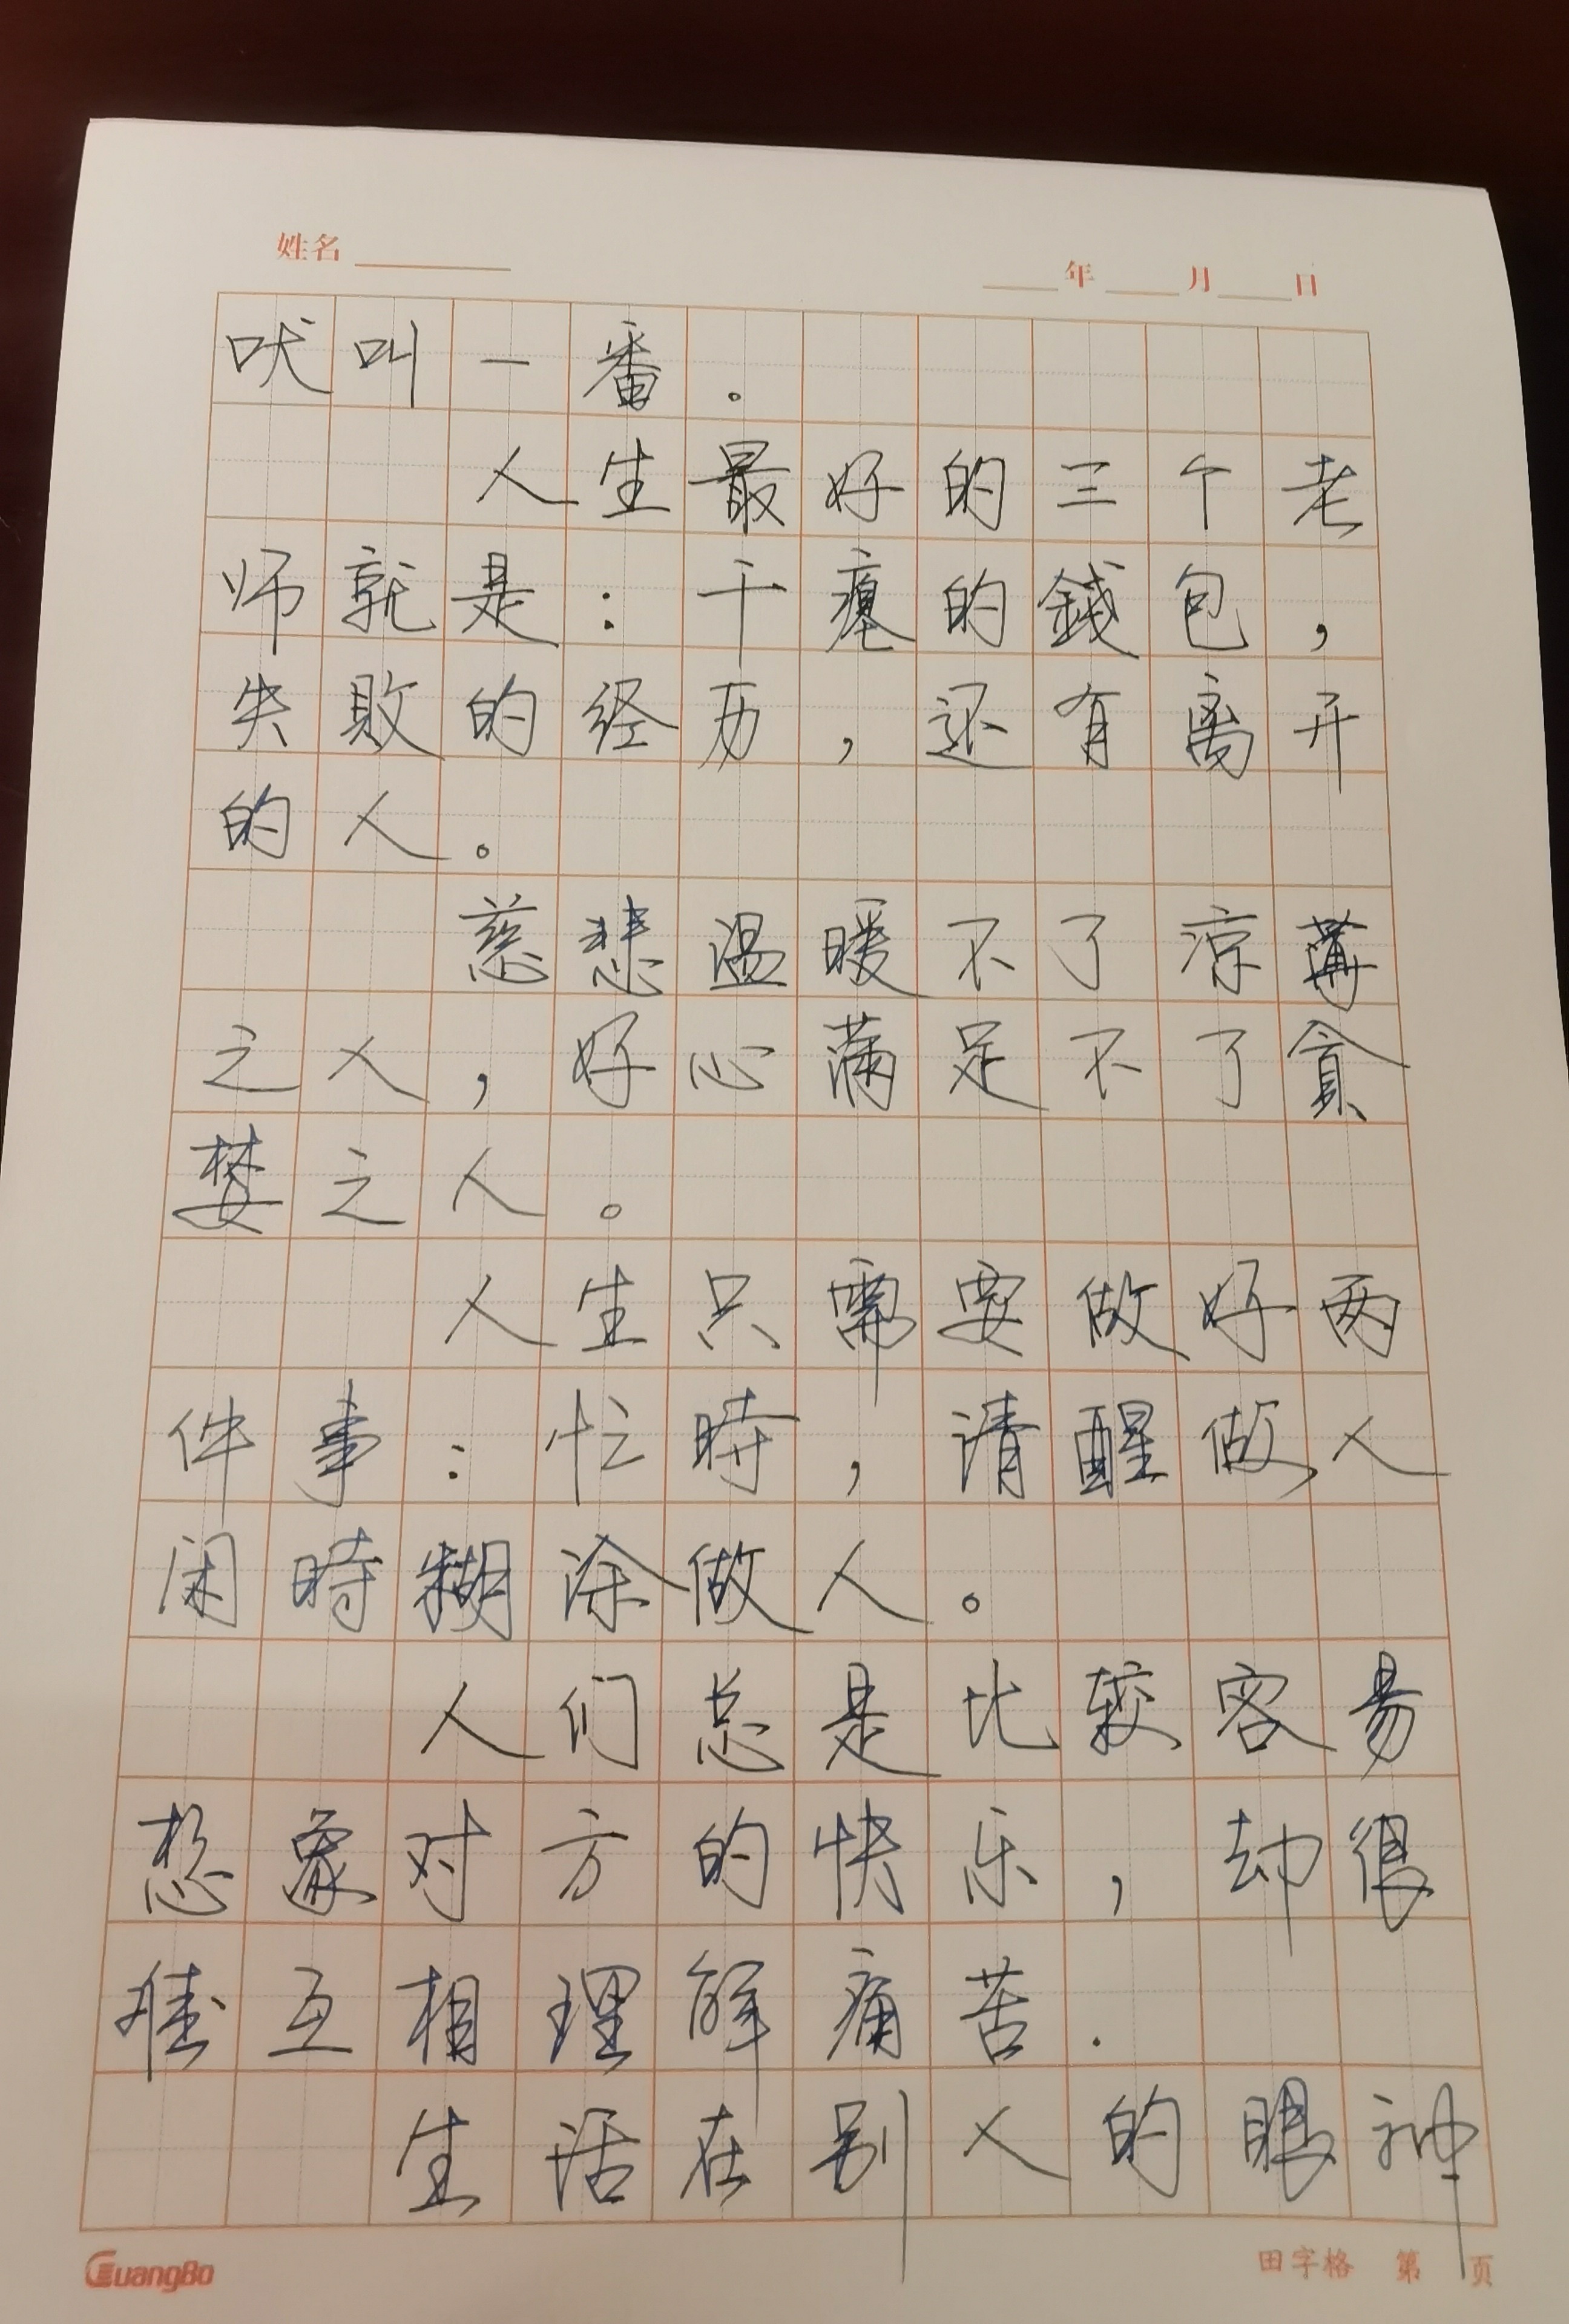 姓名 年 月 日
吠叫一番.
人生最好的三个老
师就是:干瘪的錢包,
失敗的经历,还有离开
的人。
慈悲温暖不了凉薄
之人,好心满足不了貪
婪之人。
人生只需要做好两
件事:忙時,请醒做人
闲時糊涂做人。
人们总是比较容易
想象对方的快乐,却很
难互相理解痛苦.
生活在别人的眼神
GuangBo 田字格 第 页